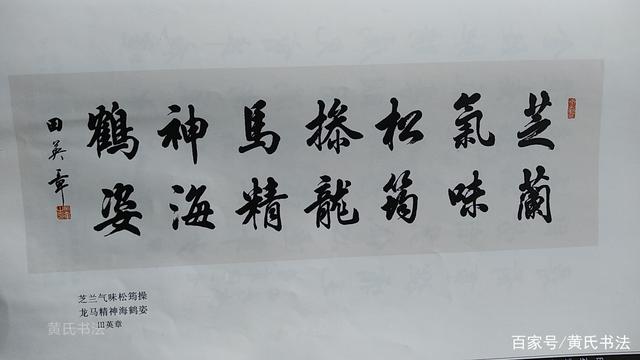 芝蘭
氣味
松筠
操龍
馬精
神海
鶴姿
田英章
芝兰气味松筠操
龙马精神海鹤姿
田英章
黄氏书法
百家号/黄氏书法